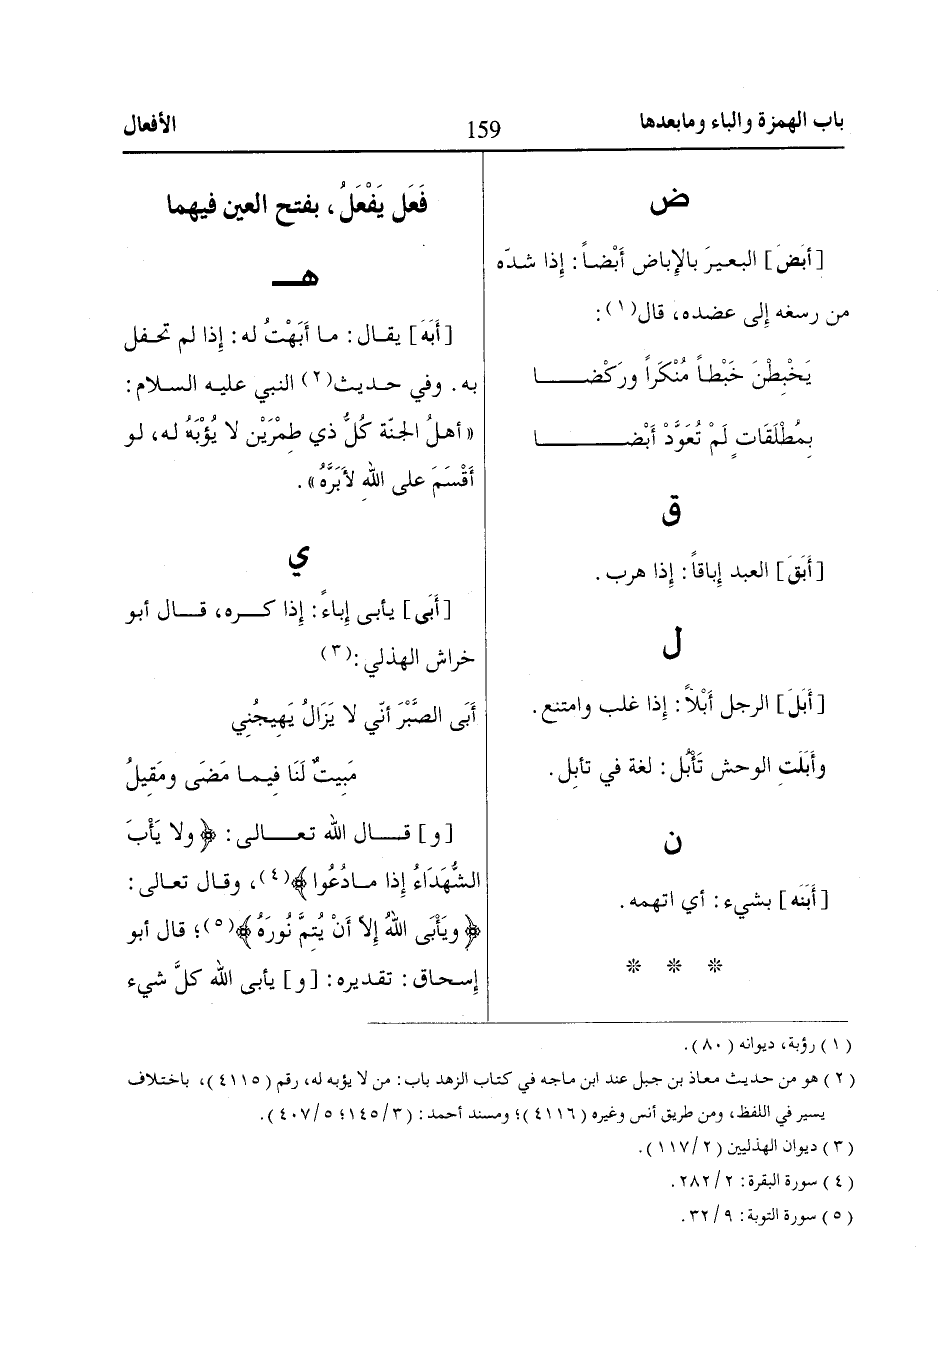 باب الهمزة والباء ومابعدها
159
الأفعال
ض
[أبَضَ] البعيرَ بالإباض أَبْضاً: إذا شدّه
من رسغه إلى عضده، قال(١):
يَخْبِطْنَ خَبْطاً مُنْكَراً ورَكْضـــــا
بِمُطْلَقَاتٍ لَمْ تُعَوَّدْ أَبْضـــــــا
ق
[أَبَقَ] العبد إباقاً: إذا هرب.
ل
[أَبَلَ] الرجل أَبْلاً: إذا غلب وامتنع.
وأَبَلَتِ الوحش تَأْبُل: لغة في تأبِل.
ن
[أَبَنَه] بشيء: أي اتهمه.
* * *
فَعَل يَفْعَلُ، بفتح العين فيهما
هـ
[أَبَهَ] يقـال: مـا أَبَهْتُ له: إذا لم تحفل
به. وفي حديث(٢) النبي عليه السـلام:
«أهلُ الجنّة كلُّ ذي طِمْرَيْن لا يُؤْبَهُ له، لو
أَقْسَمَ على اللهِ لأَبَرَّهُ».
ي
[أَبَى] يأبى إباءً: إذا كـــره، قــال أبو
خراش الهذلي:(٣)
أَبَى الصَّبْرَ أنّي لا يَزَالُ يَهِيجُنِي
مَبِيتٌ لَنَا فِيمـا مَضَى ومَقِيلُ
[و] قــال الله تعــالى: ﴿ولا يَأْبَ
الشُّهَدَاءُ إذا مـادُعُوا﴾(٤)، وقال تعالى:
﴿ويَأْبَى اللهُ إلاّ أَنْ يُتِمَّ نُورَهُ﴾(٥)؛ قال أبو
إسحاق: تقديره: [و] يأبى الله كلَّ شيء
(١) رؤبة، ديوانه (٨٠).
(٢) هو من حديث معاذ بن جبل عند ابن ماجه في كتاب الزهد باب: من لا يؤبه له، رقم (٤١١٥)، باختلاف
يسير في اللفظ، ومن طريق أنس وغيره (٤١١٦)؛ ومسند أحمد: (٣/١٤٥؛ ٥/٤٠٧).
(٣) ديوان الهذليين (٢/١١٧).
(٤) سورة البقرة: ٢/٢٨٢.
(٥) سورة التوبة: ٩/٣٢.